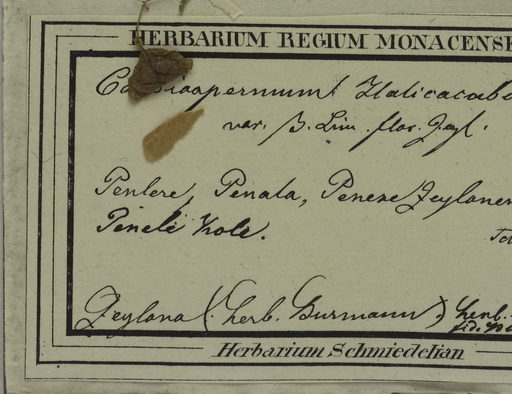 HERBARIUM REGIUM MONACENSE
Cardiospermum Halicacabu
var. β. Lin. flor. Zeyl.
Penlere, Penala, Penere Zeylonen
Penelè Kole.
Zeylona (herb. Burmann) herb.
Herbarium Schmiedelian